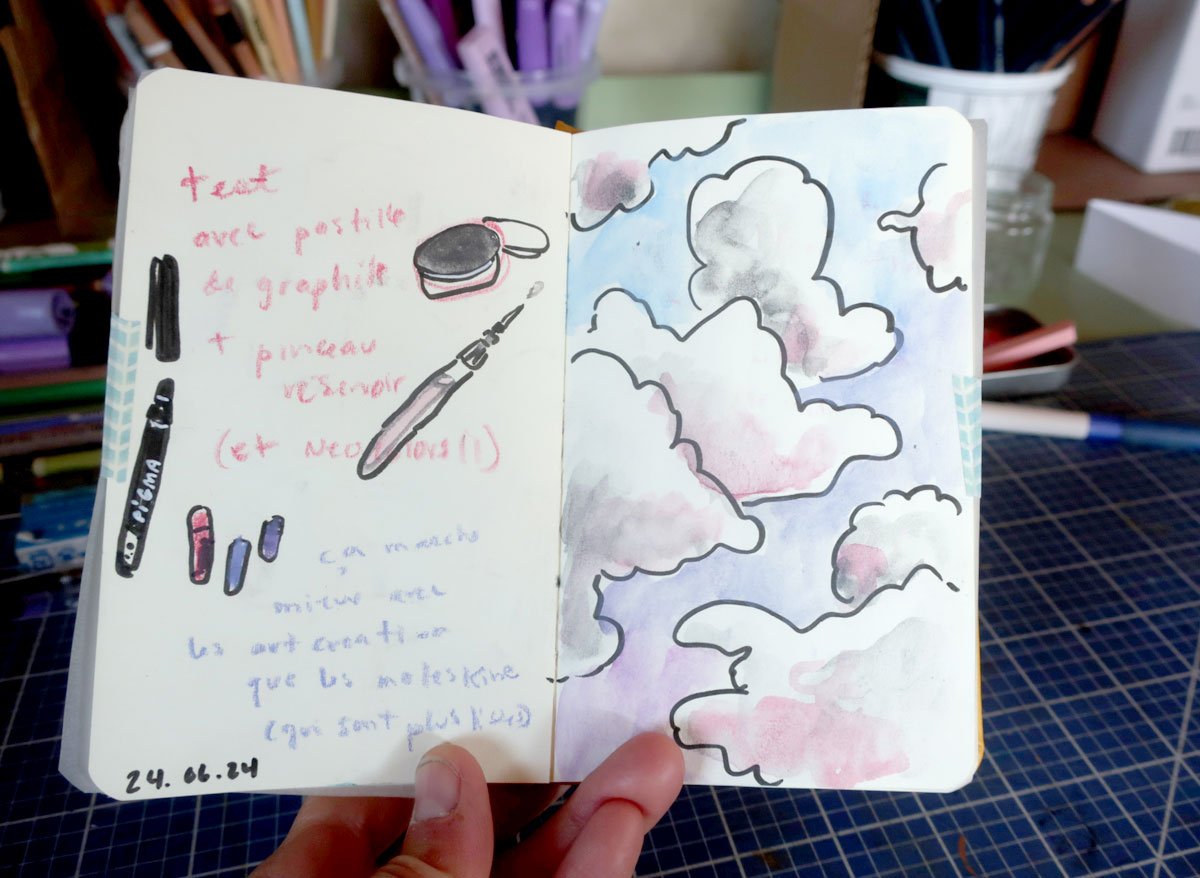 test
avec pastille
de graphite
+ pinceau
réservoir
(et Neocolors II)
PIGMA
ça marche
mieux avec
les art creation
que les moleskine
(qui sont plus
24.06.24